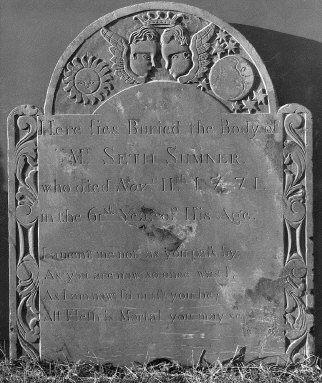 Here lies Buried the Body of
Mr SETH SUMNER
who died Nov. 11th 1771.
in the 61st Year of His Age.
Lament me not as you pass by
As you are now so once was I,
As I am now so must you be,
All Flesh is Mortal you may see